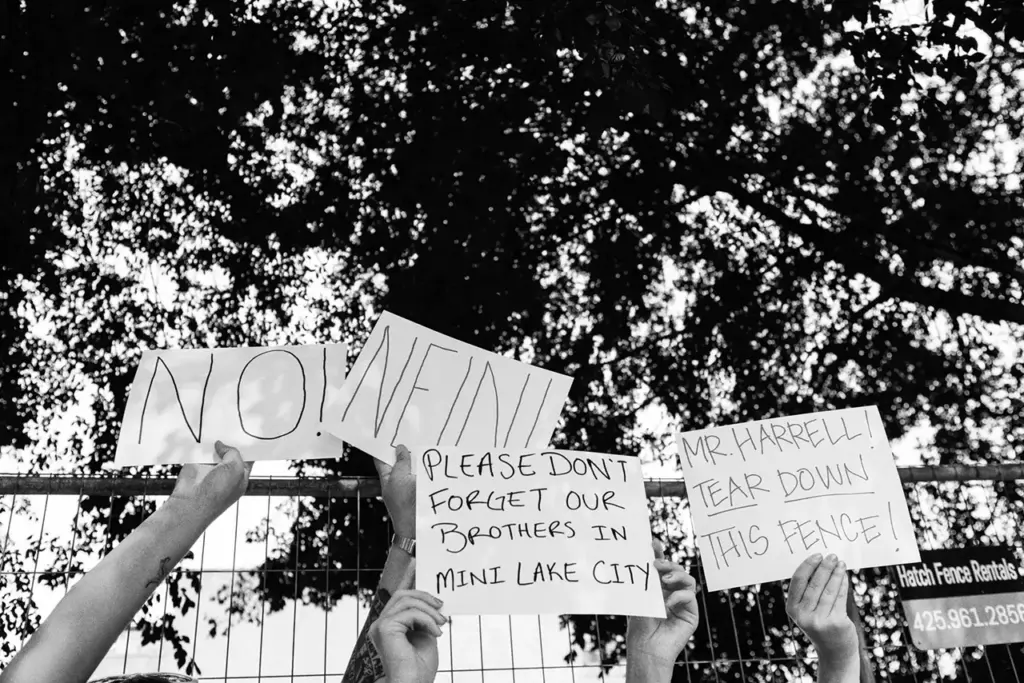 NO!
NEIN!
PLEASE DON'T
FORGET OUR
BROTHERS IN
MINI LAKE CITY
MR. HARRELL!
TEAR DOWN
THIS FENCE!
Hatch Fence Rentals
425.961.2856